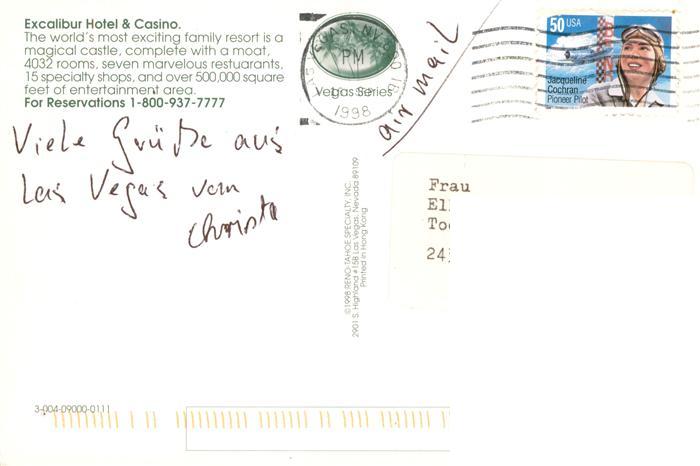 Excalibur Hotel & Casino.
The world's most exciting family resort is a
magical castle, complete with a moat,
4032 rooms, seven marvelous restuarants,
15 specialty shops, and over 500,000 square
feet of entertainment area.
For Reservations 1-800-937-7777
Viele Grüße aus
Las Vegas von
Christa
PM
1998
Vegas Series
air mail
50 USA
Jacqueline
Cochran
Pioneer Pilot
©1998 RENO-TAHOE SPECIALTY, INC.
2901 S. Highland #15B Las Vegas, Nevada 89109
Printed in Hong Kong
Frau
3-004-09000-0111